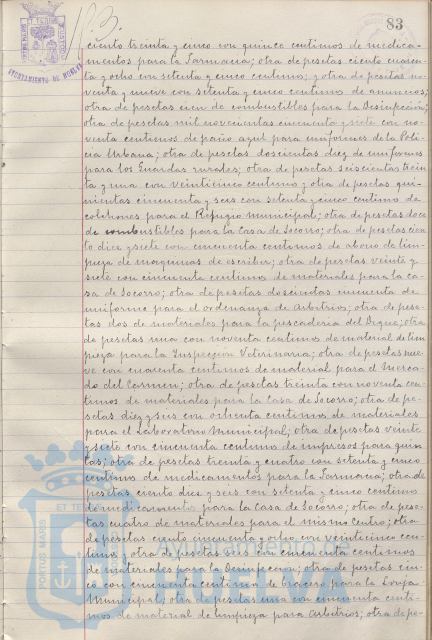 83
ciento treinta y cinco con quince centimos de medica-
mentos para la Farmacia; otra de pesetas ciento cuaren-
ta y ocho con setenta y cinco centimos; y otra de pesetas no-
venta y nueve con setenta y cinco centimos de anuncios;
otra de pesetas cien de combustibles para la Desinfección;
otra de pesetas mil novecientas cincuenta y siete con no-
venta centimos de paño azul para uniformes de la Poli-
cia Urbana; otra de pesetas doscientas diez de uniformes
para los Guardas rurales; otra de pesetas seiscientas trein-
ta y una con veinticinco centimos y otra de pesetas qui-
nientas cincuenta y seis con setenta y cinco centimos de
colchones para el Refugio Municipal; otra de pesetas doce
de combustibles para la Casa de Socorro; otra de pesetas cien-
to diez y siete con cincuenta centimos de abono de lim-
pieza de maquinas de escribir; otra de pesetas veinte y
siete con cincuenta centimos de materiales para la ca-
sa de Socorro; otra de pesetas doscientas cincuenta de
uniforme para el ordenanza de Arbitrios; otra de pese-
tas dos de materiales para la pescaderia del Dique; otra
de pesetas una con noventa centimos de material de lim-
pieza para la Inspeccion Veterinaria; otra de pesetas nue-
ve con cuarenta centimos de material para el Merca-
do del Carmen; otra de pesetas treinta con noventa cen-
timos de materiales para la Casa de Socorro; otra de pe-
setas diez y seis con ochenta centimos de materiales
para el Laboratorio Municipal; otra de pesetas veinte
y siete con cincuenta centimos de impresos para quin-
tas; otra de pesetas treinta y cuatro con setenta y cinco
centimos de medicamentos para la Farmacia; otra de
pesetas ciento diez y seis con setenta y cinco centimos
de medicamentos para la Casa de Socorro; otra de pese-
tas cuatro de materiales para el mismo Centro; otra
de pesetas ciento cincuenta y ocho con veinticinco cen-
timos y otra de pesetas seis con cincuenta centimos
de materiales para la Desinfeccion; otra de pesetas cin-
co con cincuenta centimos de bracero para la Lonja
Municipal; otra de pesetas una con cincuenta centi-
mos de material de limpieza para Arbitrios; otra de pe-
AYUNTAMIENTO DE HUELVA
PORTUS MARIS